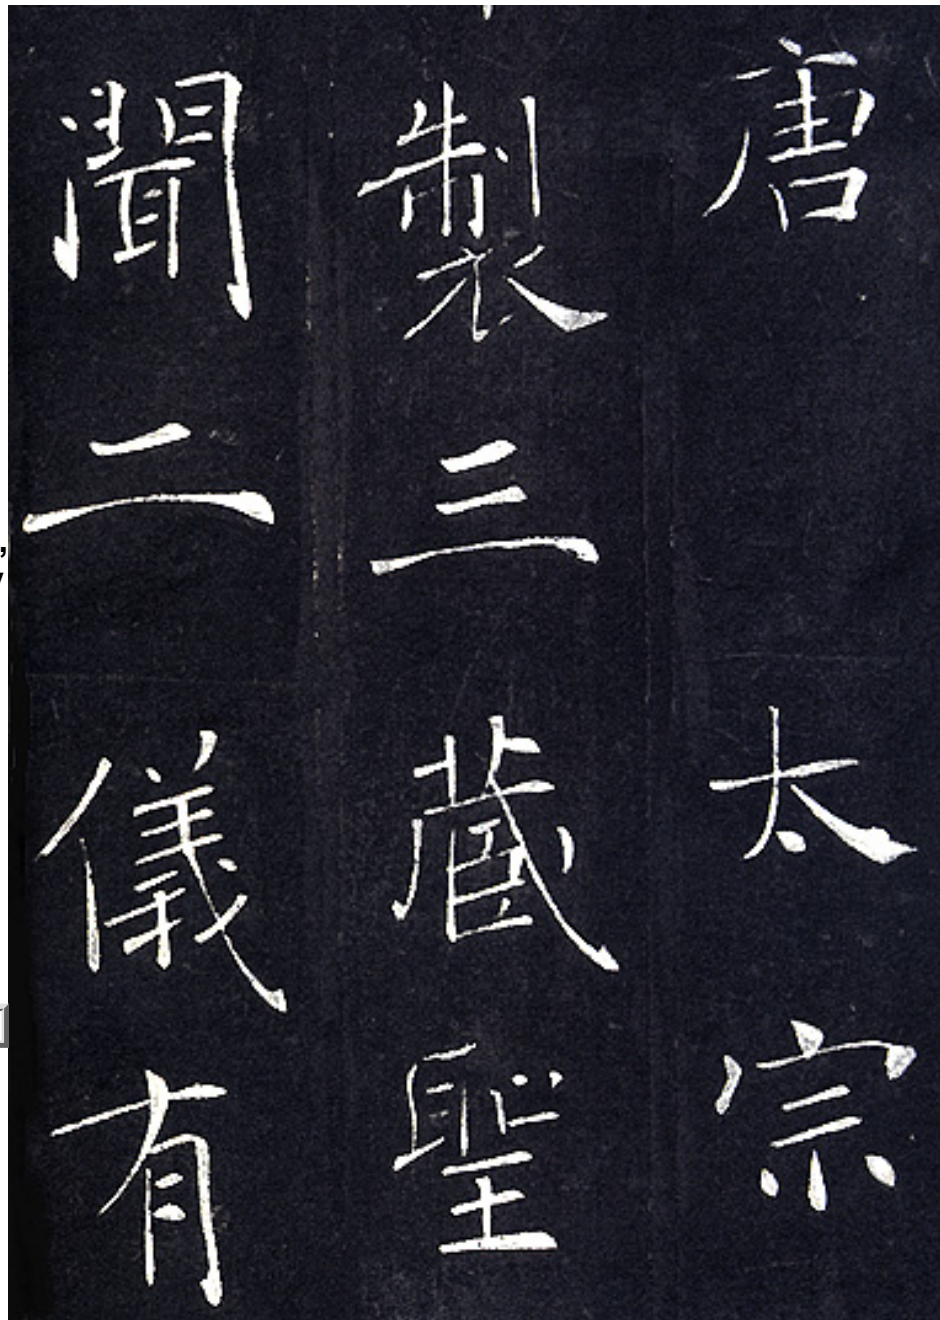 唐太宗
製三藏聖
聞二儀有